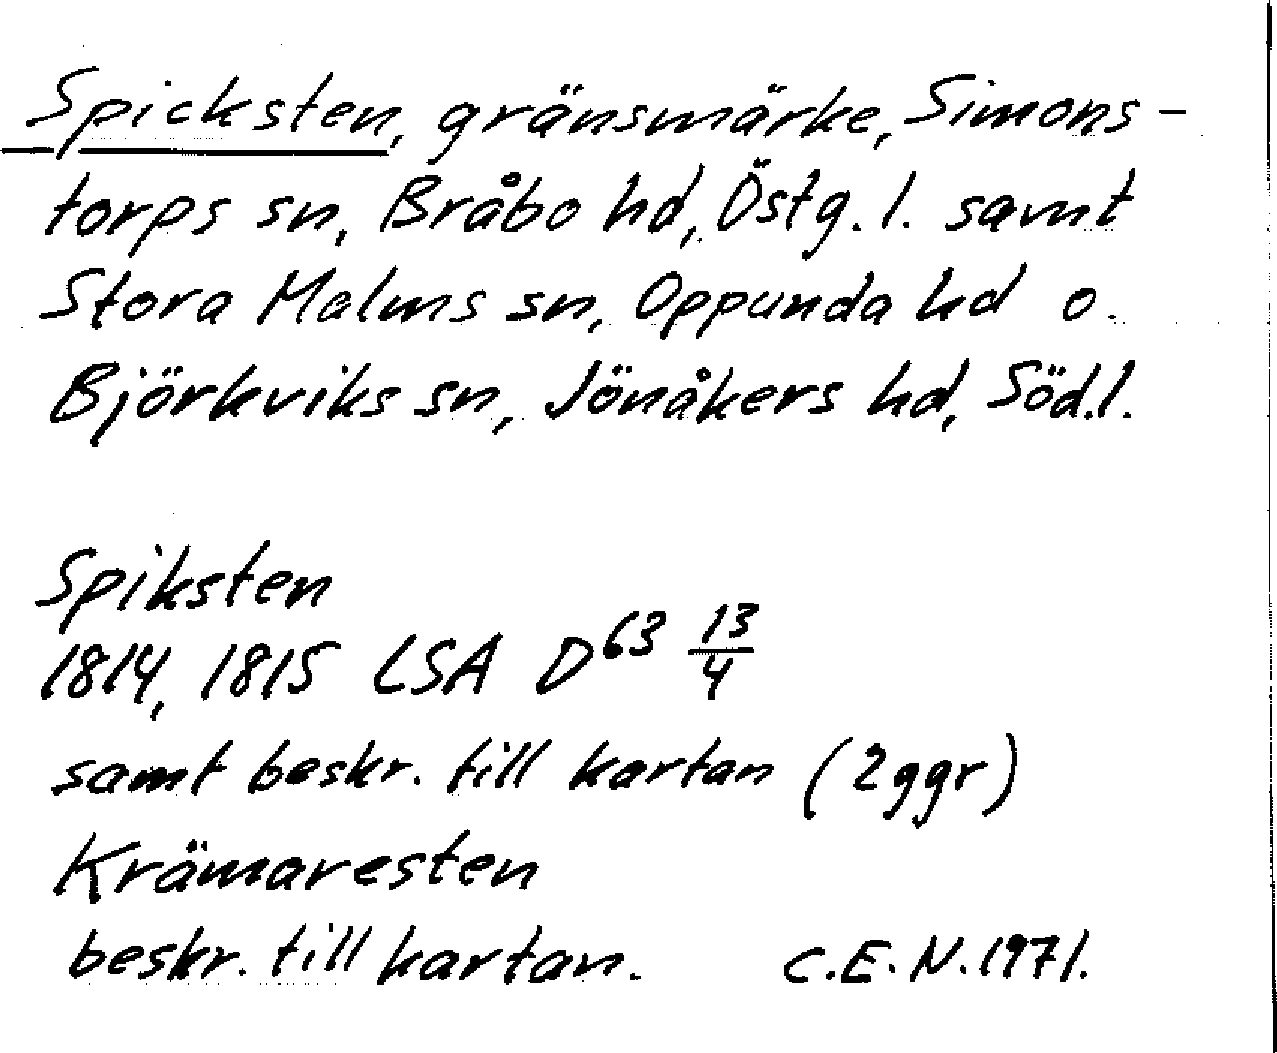 Spicksten, gränsmärke, Simons-
torps sn, Bråbo hd, Östg. l. samt
Stora Malms sn, Oppunda hd o.
Björkviks sn, Jönåkers hd, Söd.l.
Spiksten
1814, 1815 LSA D⁶³ 13/4
samt beskr. till kartan (2ggr)
Krämaresten
beskr. till kartan. C.E.N. 1971.